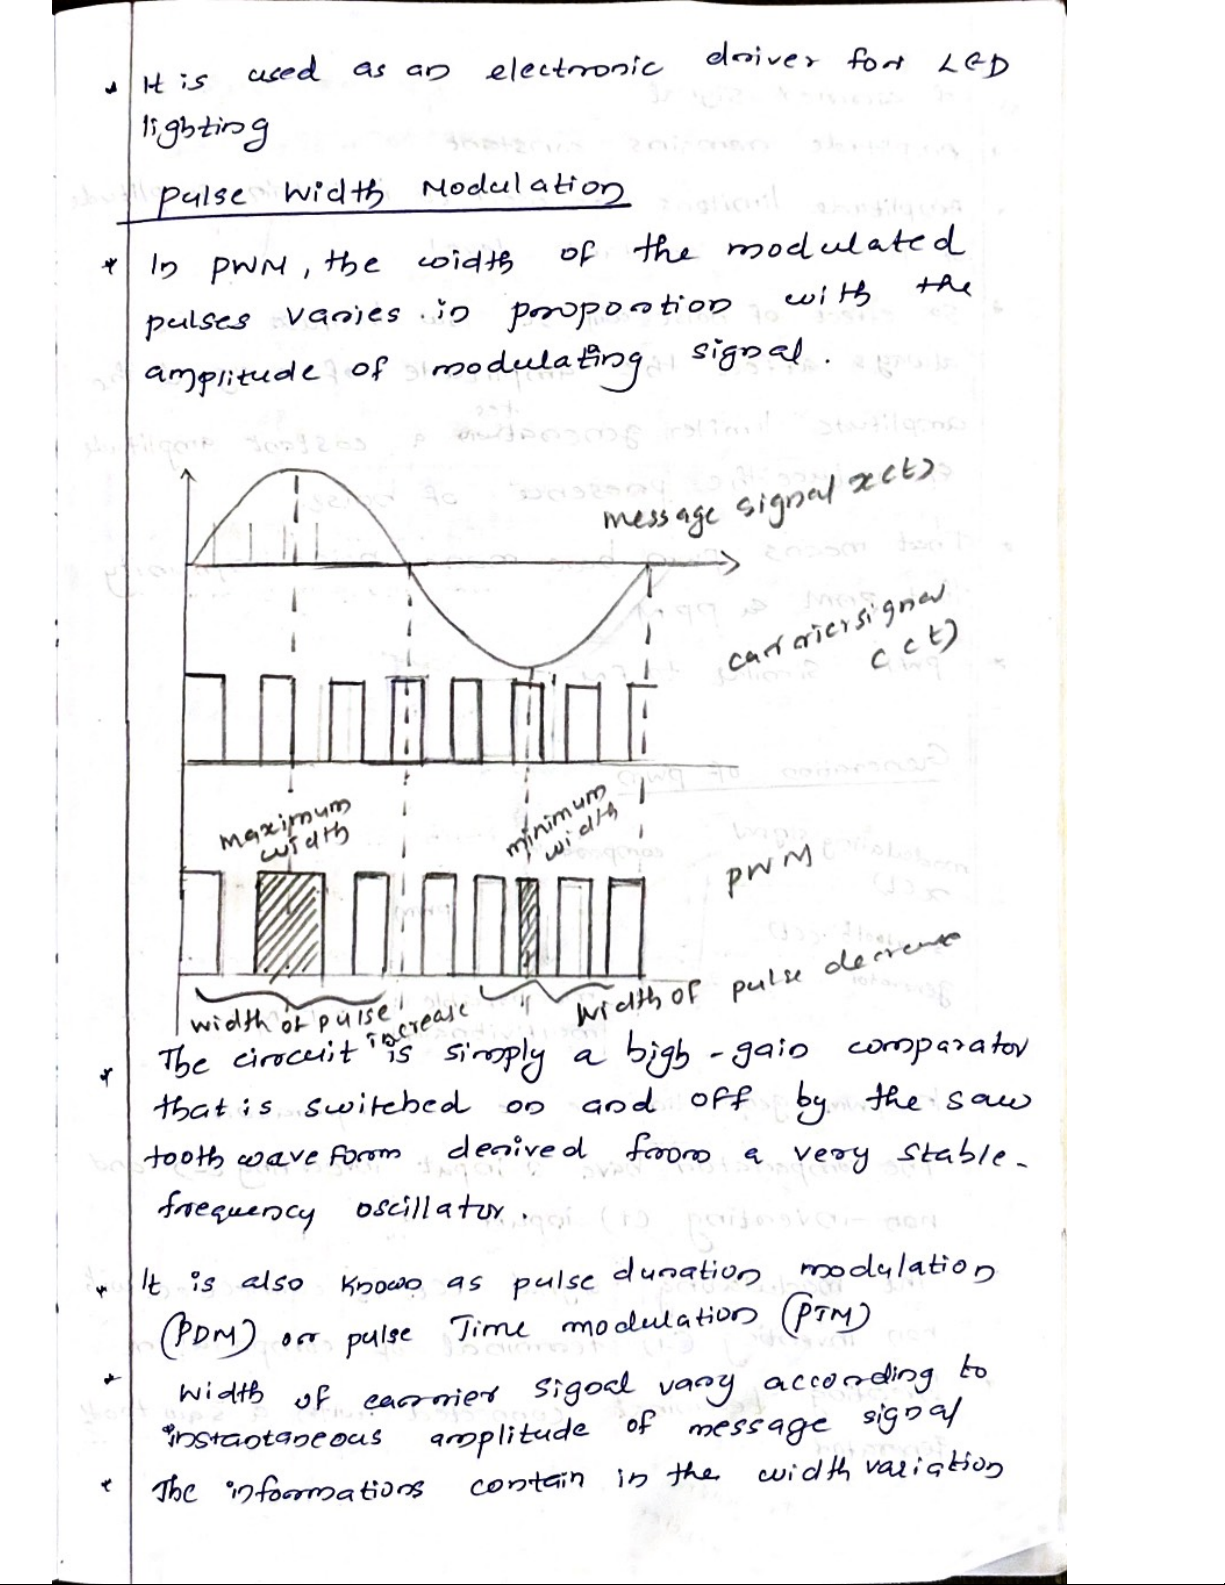 * It is used as an electronic driver for LED
lighting
Pulse Width Modulation
* In PWM, the width of the modulated
pulses varies in proportion with the
amplitude of modulating signal.
message signal x(t)
carrier signal
c(t)
maximum
width
minimum
width
PWM
width of pulse
increase
Width of pulse decrease
* The circuit is simply a high-gain comparator
that is switched on and off by the saw
tooth wave form derived from a very stable-
frequency oscillator.
* It is also known as pulse duration modulation
(PDM) or pulse Time modulation (PTM)
* Width of carrier signal vary according to
instantaneous amplitude of message signal
* The informations contain in the width variation